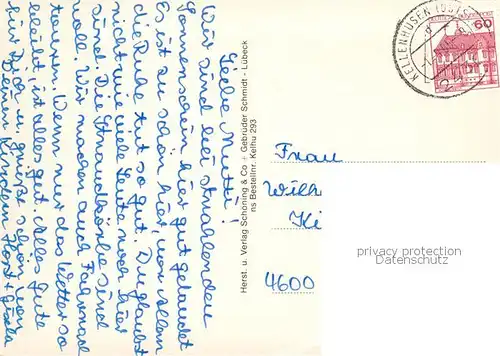 Liebe Mutti!
Wir sind bei strahlenden
Sonnenschein hier gut gelandet
Es ist zu schön hier, vor allem
die Ruhe tut so gut. Du glaubst
nicht wie viele Leute noch hier
sind. Die Strandkörbe sind
voll. Wir machen auch Fahrrad
touren. Wenn nur das Wetter so
bleibt, ist alles gut. Alles Gute
für Dich u. grüße schön von
Deinen Kindern Horst + Gisela
Herst. u. Verlag Schöning & Co + Gebrüder Schmidt - Lübeck
ns Bestellnr. Kelhu 293
KELLENHUSEN (OSTS
60
Frau
Wilh
Ki
4600
privacy protection
Datenschutz